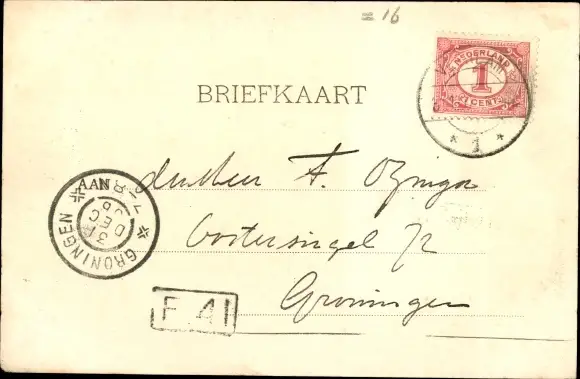 = 16
NEDERLAND
1
1 CENT
* 1 *
BRIEFKAART
AAN
den Heer A. Ozinga
Oostersingel 72
Groningen
GRONINGEN
3 DEC
7-8
F 41